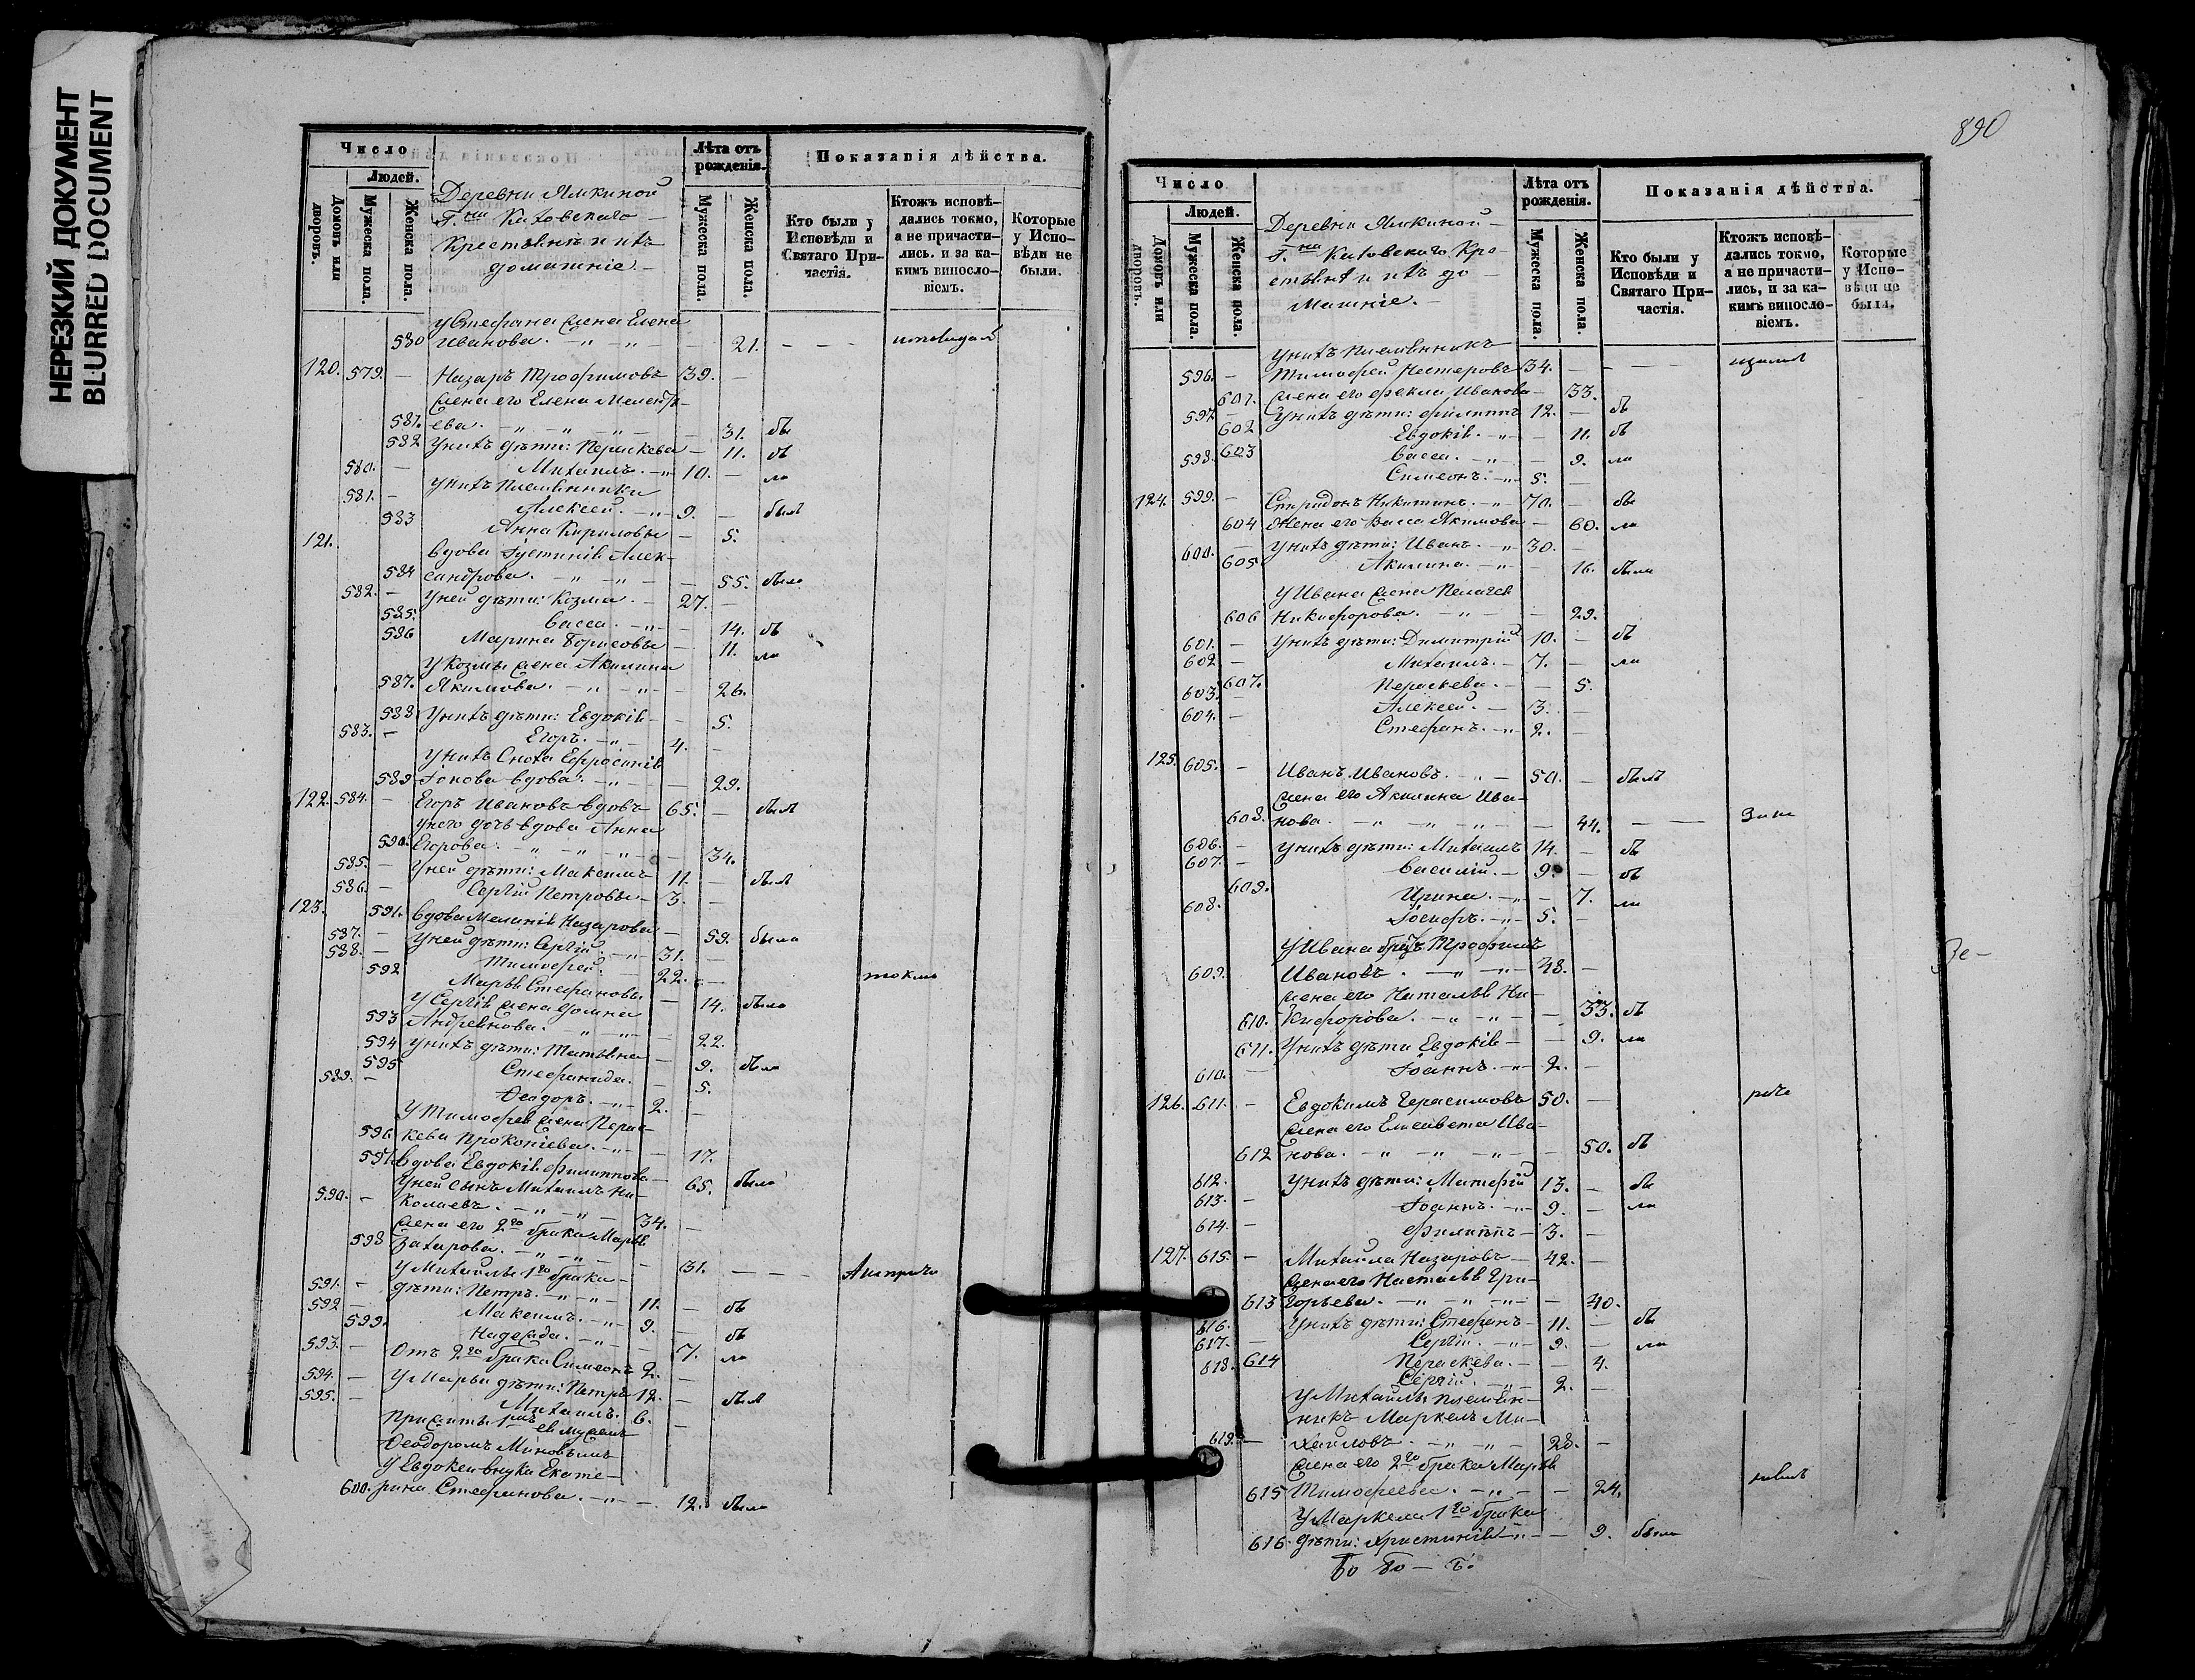 НЕРЕЗКИЙ ДОКУМЕНТ
BLURRED DOCUMENT
Число
Людей.
Домовъ или дворовъ.
Мужеска пола.
Женска пола.
Деревни Ямкиной
Г.на Китовскаго
Крестьяне и ихъ
домашніе.
Лѣта отъ рожденія.
Мужеска пола.
Женска пола.
Показанія дѣйства.
Кто были у Исповѣди и Святаго Причастія.
Ктожъ исповѣдались токмо, а не причастились, и за какимъ винословіемъ.
Которые у Исповѣди не были.
У Стефана жена Елена
580 Иванова. 21.
120. 579. Назаръ Трофимовъ 39.
жена его Елена
581. 31. бы
582 У нихъ дѣти: Параскева 11. лъ
580. Михаилъ. 10. ла
У нихъ племянники
581. Алексей. 9. былъ
583 Анна Кириловы 5.
121. Вдова Іустинія Алек-
584 сандрова. 55. была
582. У ней дѣти: Козма. 27.
585. Васса. 14. бъ
586 Марина Борисовы 11. ла
У Козмы жена Акилина
587. Якимова. 26.
588 У нихъ дѣти: Евдокія 5.
583. Егоръ. 4.
У нихъ сноха Ефросинія
589 Іонова вдова. 29.
122. 584. Егоръ Ивановъ вдовъ 65. былъ
У него дочь вдова Анна
590. Егорова. 34.
585. У ней дѣти: Максимъ 11. былъ
586. Сергій Петровы 3.
123. 591. Вдова Меланія Назарова 59. была
587. У ней дѣти: Сергій 31.
588. Тимофей. 22. токмо
592 Марья Стефановы 14. была
У Сергія жена Домна
593 Андреянова. 22.
594 У нихъ дѣти: Татьяна 9. была
595 Стефанида. 5.
589. Ѳеодоръ. 2.
У Тимофея жена Парас-
596 кева Прокопіева. 17.
597 Вдова Евдокія Филиппова 65. была
У ней сынъ Михаилъ Ни-
590. колаевъ. 34.
жена его 2го брака Марья
598 Захарова. 31.
У Михаилы 1го брака
591. дѣти: Петръ. 11. бъ
592 Максимъ. 9. бъ
599. Надежда. 7. ла
593. Отъ 2го брака Симеонъ 2.
594. У Марьи дѣти: Петръ 12. былъ
595. Михаилъ. 6.
прижиты 1мъ ея мужемъ
Ѳеодоромъ Миновымъ
У Евдокеи внука Екате-
600. рина Стефанова. 12. была
890
Число
Людей.
Домовъ или дворовъ.
Мужеска пола.
Женска пола.
Деревни Ямкиной
Г.на Китовскаго Кре-
стьяне и ихъ до-
машніе.
Лѣта отъ рожденія.
Мужеска пола.
Женска пола.
Показанія дѣйства.
Кто были у Исповѣди и Святаго Причастія.
Ктожъ исповѣдались токмо, а не причастились, и за какимъ винословіемъ.
Которые у Исповѣди не были.
У нихъ племянникъ
596. Тимофей Нестеровъ 34.
601. жена его Фекла Иванова 33.
597. У нихъ дѣти: Филиппъ 12. бъ
602 Евдокія. 11. бъ
603 Васса. 9. ла
598. Симеонъ. 5.
124. 599. Спиридонъ Никитинъ. 70. бы
604 Жена его Васса Якимова 60. ла
600. У нихъ дѣти: Иванъ. 30.
605 Акилина. 16. была
У Ивана жена Пелагея
606 Никифорова. 29.
601. У нихъ дѣти: Димитрій 10. бъ
602 Михаилъ. 7. ла
607. Параскева. 5.
603. Алексей. 3.
604. Стефанъ. 2.
125. 605. Иванъ Ивановъ. 50. былъ
жена его Акилина Ива-
608. нова. 44.
606. У нихъ дѣти: Михаилъ 14. бъ
607. Василій. 9. бъ
609. Ирина. 7. ла
608. Іосифъ. 5.
У Ивана братъ Трофимъ
609. Ивановъ. 48.
жена его Наталья Ни-
610. кифорова. 33. бъ
611. У нихъ дѣти Евдокія 9. ла
610. Іоаннъ. 2.
126. 611. Евдокимъ Герасимовъ 50.
жена его Елисавета Ива-
612 нова. 50. бъ
612. У нихъ дѣти: Матфій 13. бы
613. Іоаннъ. 9. ла
614. Филиппъ 3.
127. 615. Михаила Назаровъ 42.
жена его Настасья Гри-
613 горьева. 40.
616. У нихъ дѣти: Стефанъ 11. бъ
617. Сергій. 9. ла
614 Параскева. 4.
618. Сергій. 2.
У Михаилы племян-
никъ Маркелъ Ми-
619. хайловъ. 28.
жена его 2го брака Марья
615 Тимофеева. 24.
У Маркела 1го брака
616. дѣти: Христинія 9. была